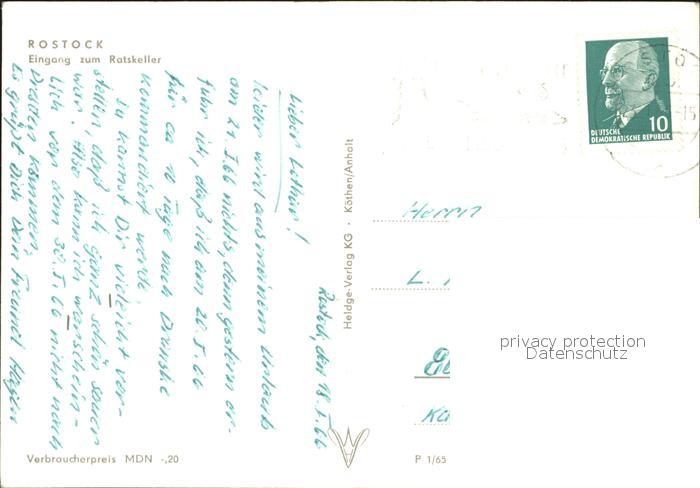 ROSTOCK
Eingang zum Ratskeller
Rostock, den 18.I.66
Lieber Lothar!
leider wird aus meinem Urlaub
am 21.I.66 nichts, denn gestern er-
fuhr ich, daß ich am 20.I.66
für ca 10 Tage nach
kommandiert werde.
Du kannst Dir vielleicht vor-
stellen, daß ich ganz schön sauer
war. Also kann ich warschein-
lich vor dem 30.I.66 nicht nach
Dresden kommen.
Es grüßt Dich Dein Freund Hagen
Verbraucherpreis MDN -,20
Heldge-Verlag KG · Köthen/Anhalt
P 1/65
10
DEUTSCHE
DEMOKRATISCHE REPUBLIK
Herrn
L.
privacy protection
Datenschutz